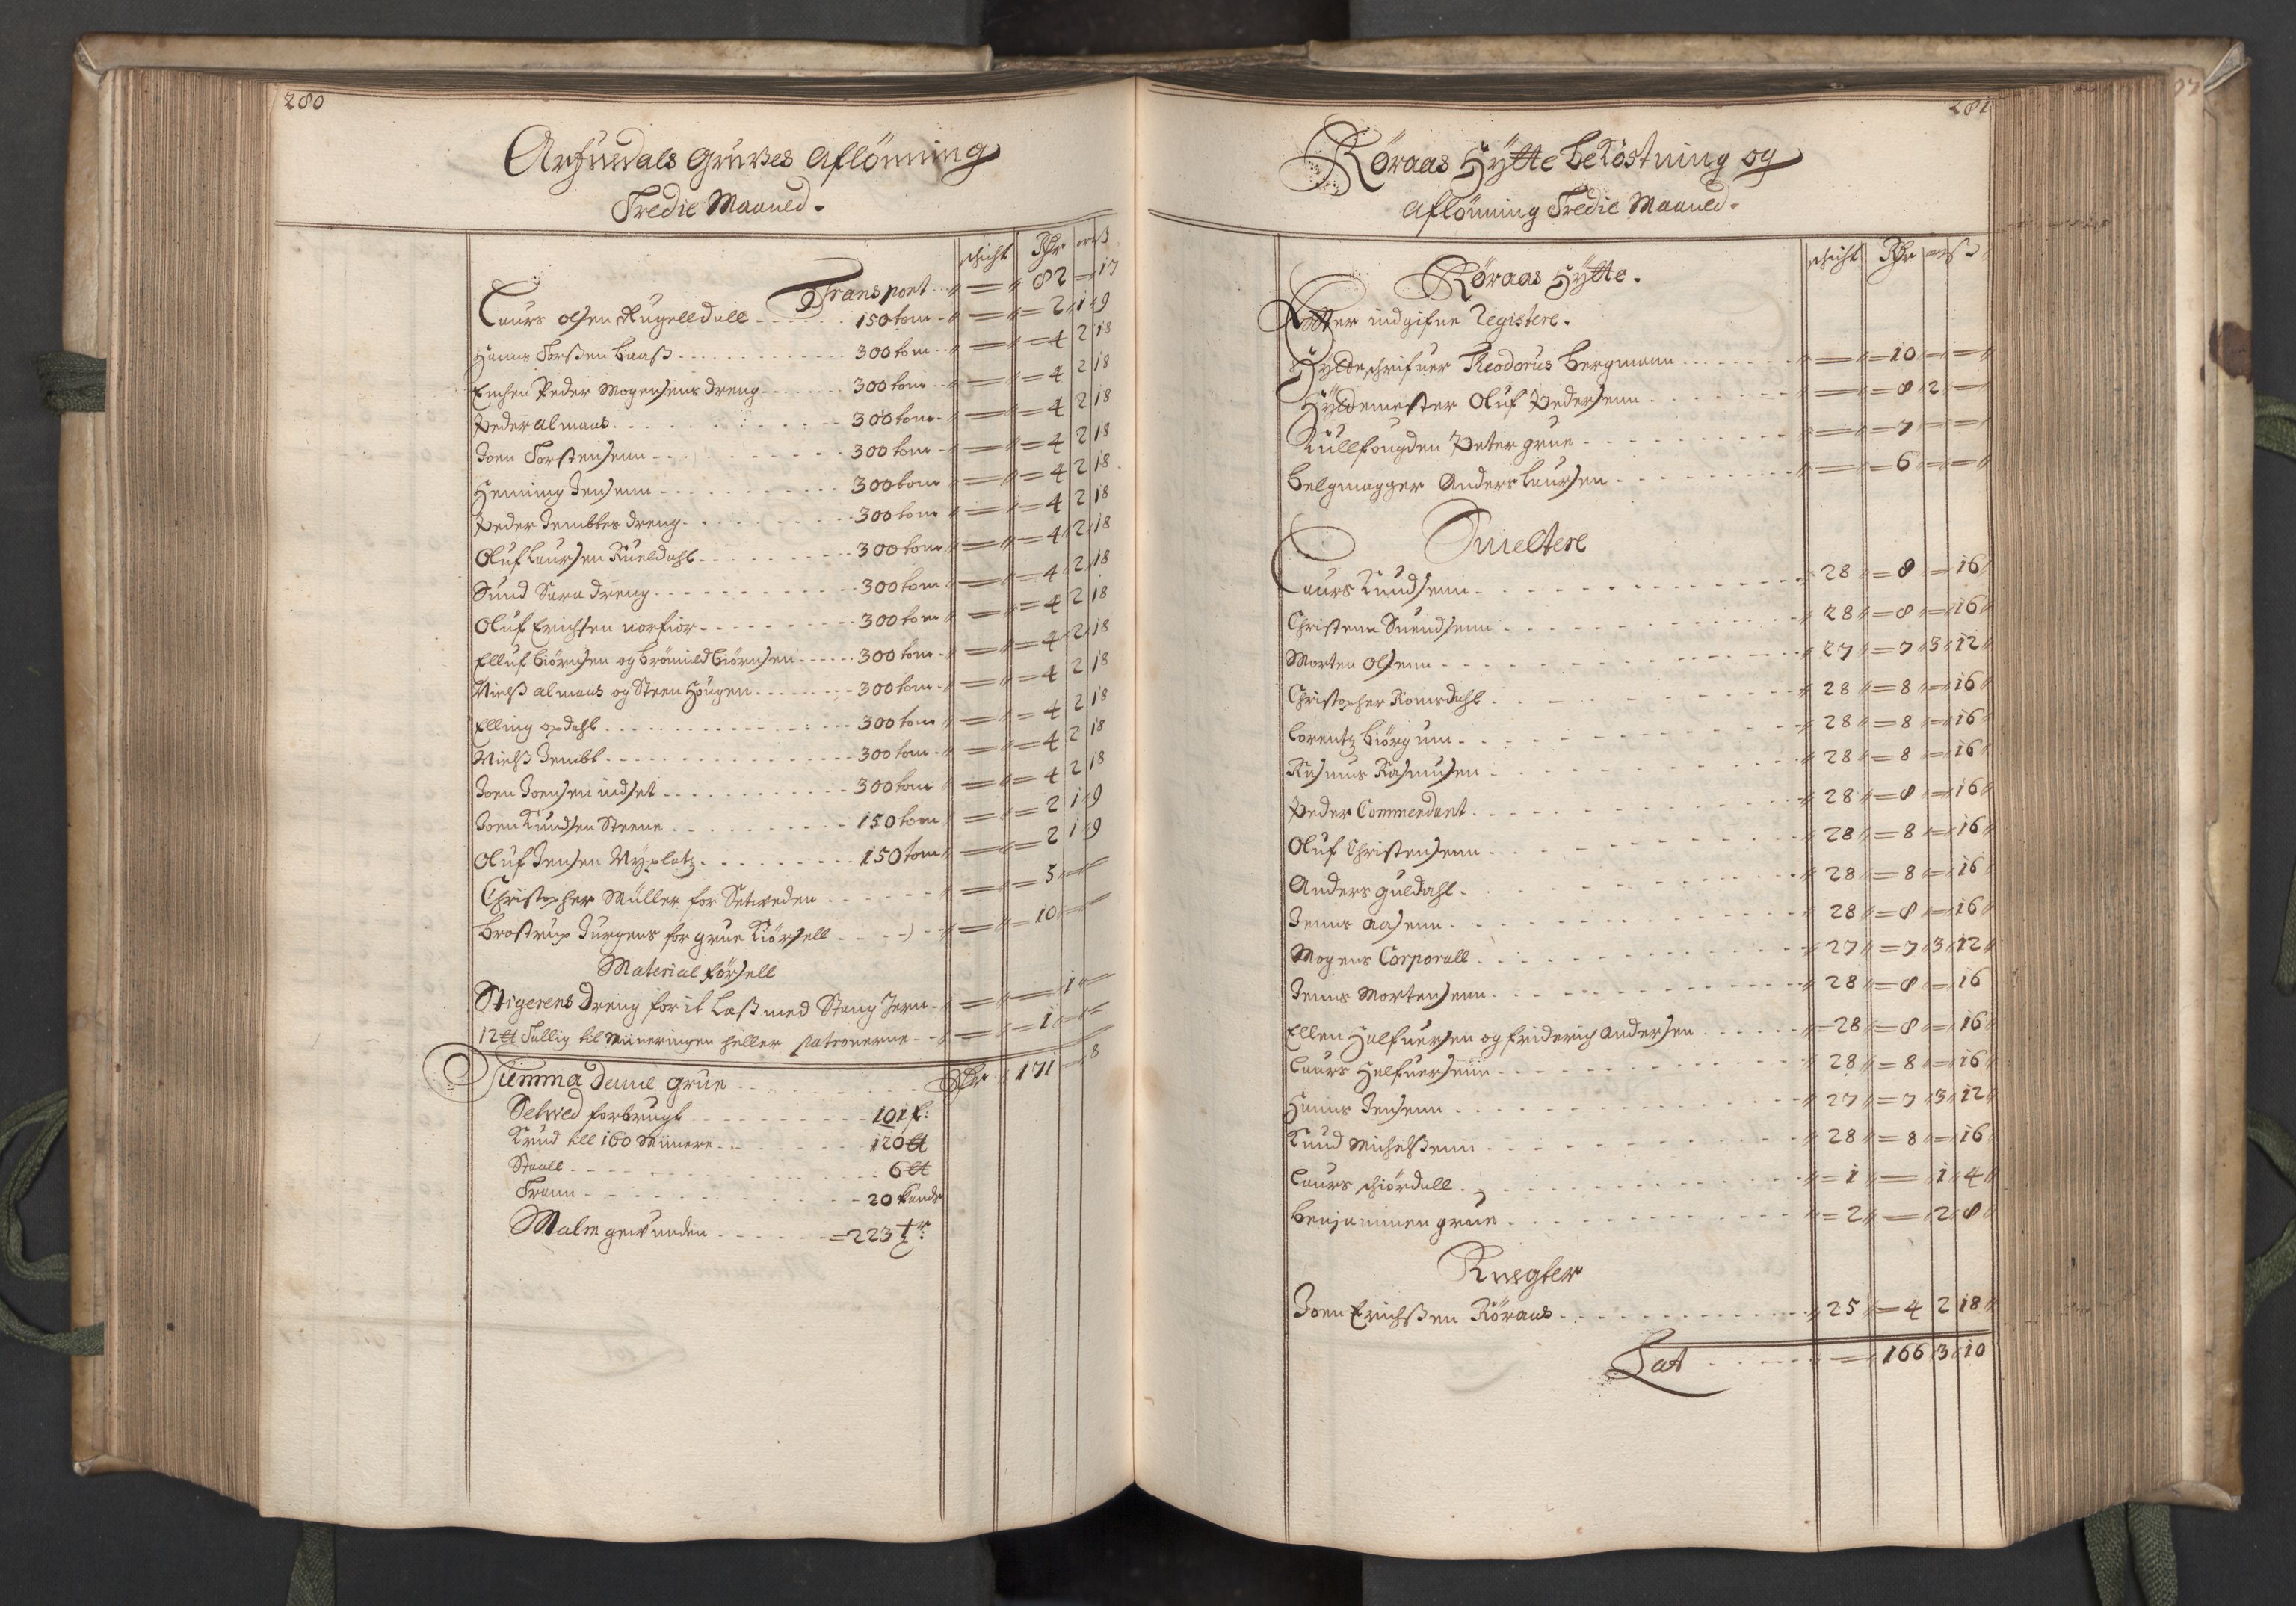 280
Arfuedals Gruves Aflönning
Tredie Maaned.
schicht Rhr ort ß
Transport 82 17
Laurs Olsen Rugelldall 150 tonr 2 1 9
Hanns Torßen Baaß 300 tonr 4 2 18
Enchen Peder Mogensens dreng 300 tonr 4 2 18
Peder Almaas 300 tonr 4 2 18
Joen Torstensenn 300 tonr 4 2 18
Henning Jensenn 300 tonr 4 2 18
Peder Jembtes dreng 300 tonr 4 2 18
Oluf Laursen Rueldahl 300 tonr 4 2 18
Suend Sara dreng 300 tonr 4 2 18
Oluf Erichsen 300 tonr 4 2 18
Elluf Biörnsen og Biörnsen 300 tonr 4 2 18
Nielß Almaas og Steen Hougen 300 tonr 4 2 18
Elling opdahl 300 tonr 4 2 18
Nielß Jembt 300 tonr 4 2 18
Joen Joensen indset 300 tonr 4 2 18
Joen Knudsen Steene 150 tonr 2 1 9
Oluf Jensen Nyplatz 150 tonr 2 1 9
Christopher Müller for Setweden 5
Brostrup Jurgens for grue Kiörsell 10
Material förßell
Stigerens Dreng for it Laß med Stang Jern 1
12 ℔ Tallig til Mineringen heller patronerne 1
Summa Denne grue Rhr 171 8
Setwed forbrugt 101 f:
Krud till 160 Minere 120 ℔
Staall 6 ℔
Trann 20 kande
Malm gewunden 223 tr:
281
Röraas Hytte Bekostning og
Aflönning Tredie Maaned.
schicht Rhr ort ß
Röraas Hytte.
Effter indgifne Registere.
Hytteschrifuer Theodorus Bergmann 10
Hyttemester Oluf Pedersenn 8 2
Kullfougden Peter grue 7
Belgmagger Anders Laursen 6
Smeltere
Laurs Knudsenn 28 8 16
Christenn Suendsenn 28 8 16
Morten Olsenn 27 7 3 12
Christopher Romsdahl 28 8 16
Lorentz Biörgum 28 8 16
Rasmus Rasmusen 28 8 16
Peder Commendant 28 8 16
Oluf Christensenn 28 8 16
Anders Guldahl 28 8 16
Jenns Aasenn 28 8 16
Mogens Corporall 27 7 3 12
Jenns Mortensenn 28 8 16
Ellen Halfuersen og Friderich Andersen 28 8 16
Laurs Halfuersenn 28 8 16
Hanns Jensenn 27 7 3 12
Knud Michelßenn 28 8 16
Laurs schiördall 1 1 4
Benjammen grue 2 2 8
Knegter
Joen Erichßen Röraas 25 4 2 18
Lat 166 3 10